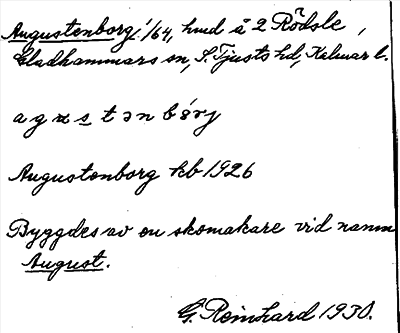 Augustenborg, 1/64, hmd å 2 Rödsle,
Gladhammars sn, S. Tjusts hd, Kalmar l.
a g ɯ s t ə n b ó r j
Augustenborg kb 1926
Byggdes av en skomakare vid namn
August.
G. Reinhard 1930.